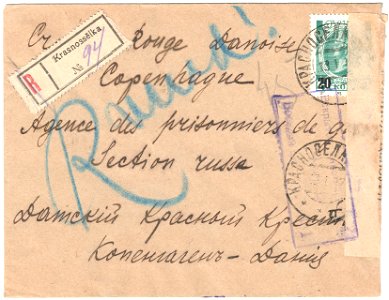 R Krasnossélka
№ 94
Rouge Danoise
Copenhague
Agence des prisonniers de
Section russe
Датский Красный Крест
Копенгаген-Дания
20
КРАСНОСЕЛК